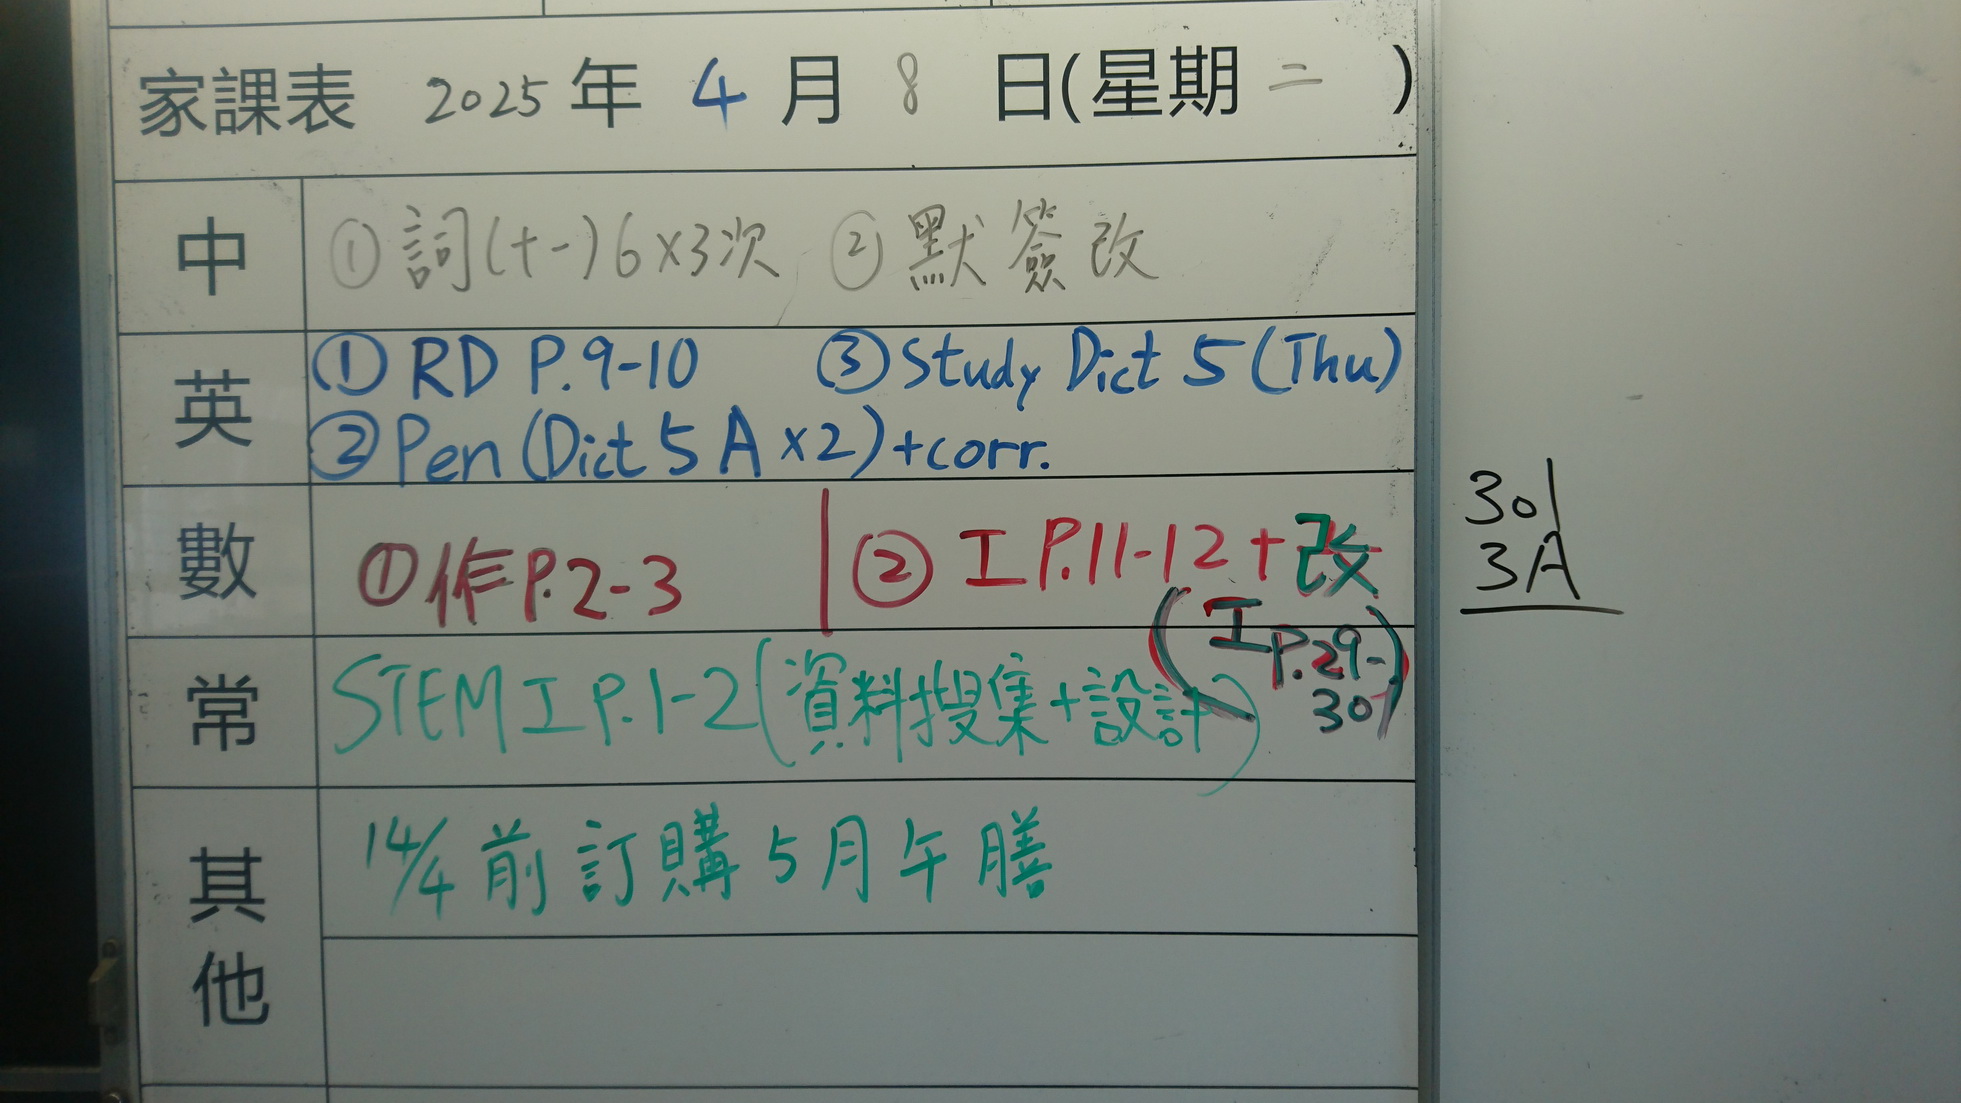 家課表 2025年 4月 8日(星期二)
中 ①詞(十一)6×3次 ②默簽改
英 ①RD P.9-10 ③Study Dict 5 (Thu)
②Pen (Dict 5 A ×2)+corr.
數 ①作P.2-3 ②工P.11-12+改
(工P.29-
30)
常 STEM工P.1-2(資料搜集+設計)
其他 14/4前訂購5月午膳
301
3A